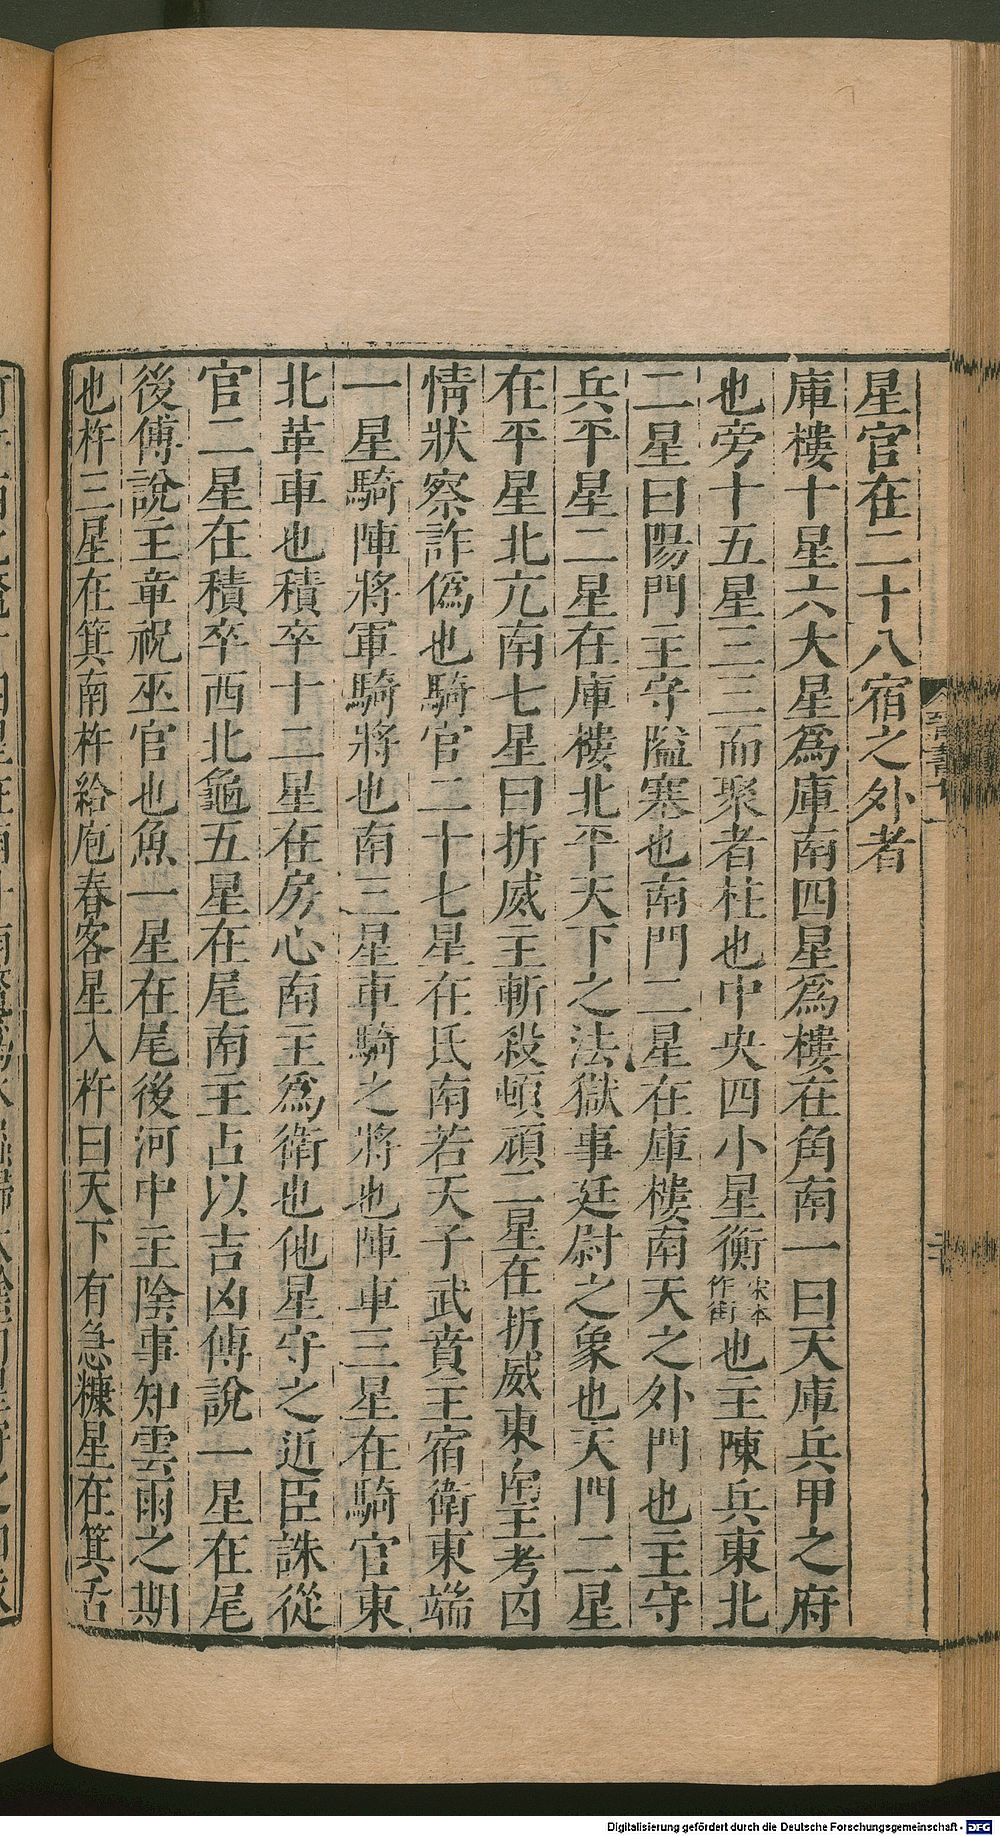 星官在二十八宿之外者
庫樓十星六大星爲庫南四星爲樓在角南一曰天庫兵甲之府
也旁十五星三三而聚者柱也中央四小星衡宋本作街也主陳兵東北
二星曰陽門主守隘塞也南門二星在庫樓南天之外門也主守
兵平星二星在庫樓北平天下之法獄事廷尉之象也天門二星
在平星北亢南七星曰折威主斬殺頓頑二星在折威東南主考囚
情狀察詐僞也騎官二十七星在氐南若天子武賁主宿衛東端
一星騎陣將軍騎將也南三星車騎之將也陣車三星在騎官東
北革車也積卒十二星在房心南主爲衛也他星守之近臣誅從
官二星在積卒西北龜五星在尾南主占以吉凶傅說一星在尾
後傅說主章祝巫官也魚一星在尾後河中主陰事知雲雨之期
也杵三星在箕南杵給庖舂客星入杵曰天下有急糠星在箕舌
Digitalisierung gefördert durch die Deutsche Forschungsgemeinschaft - DFG